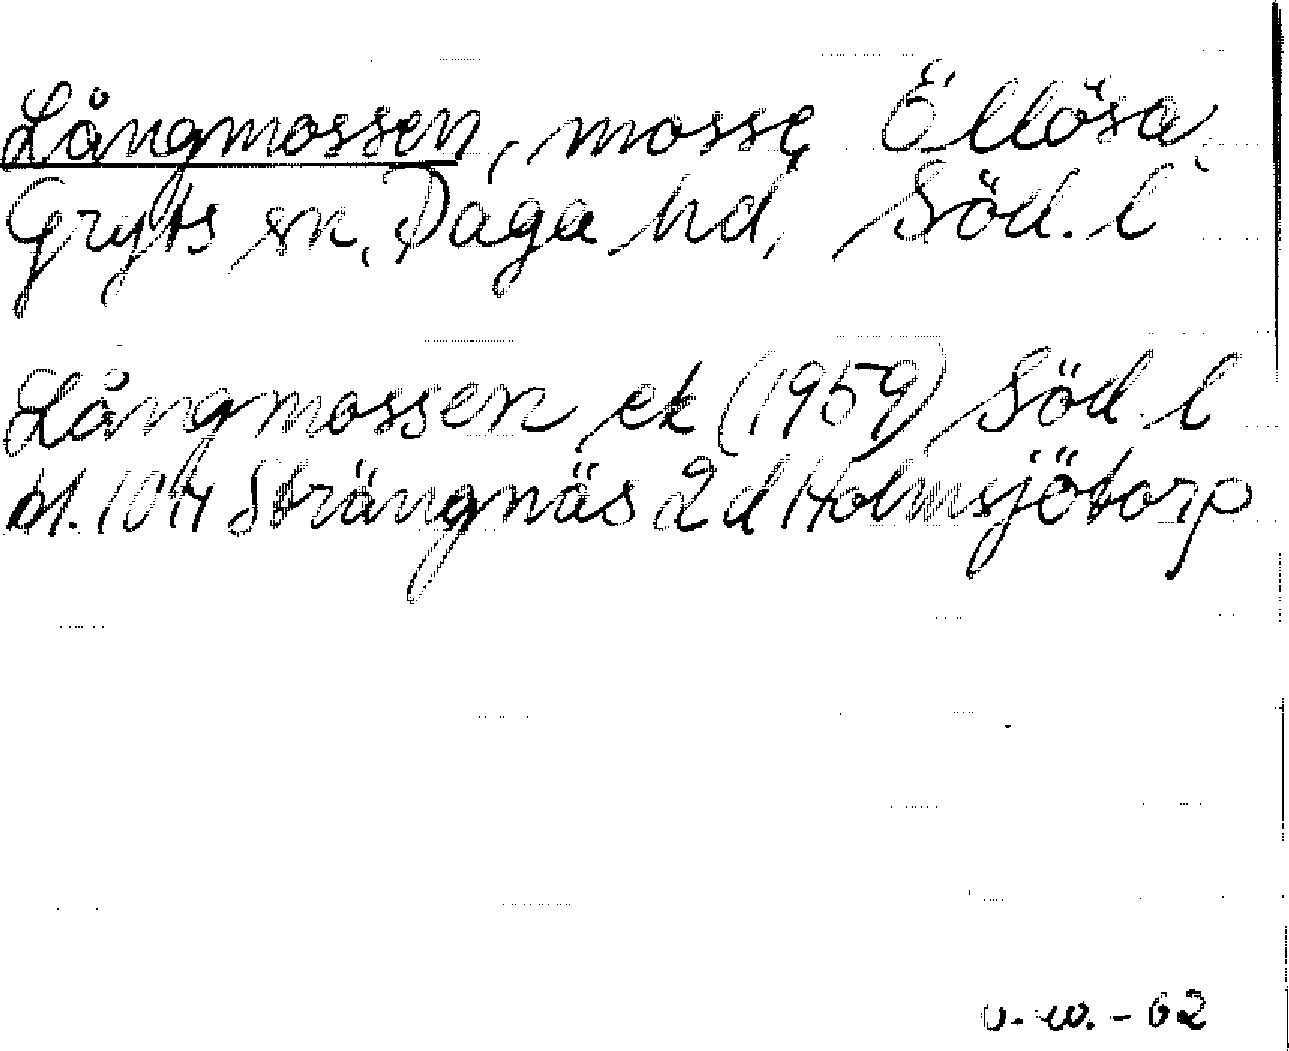 Långmossen, mosse Ëllösa
Gryts sn, Daga hd, Söd. l
Långmossen ek (1959) Söd. l
bl. 10H Strängnäs 2d Holmsjötorp
v. w. - 62